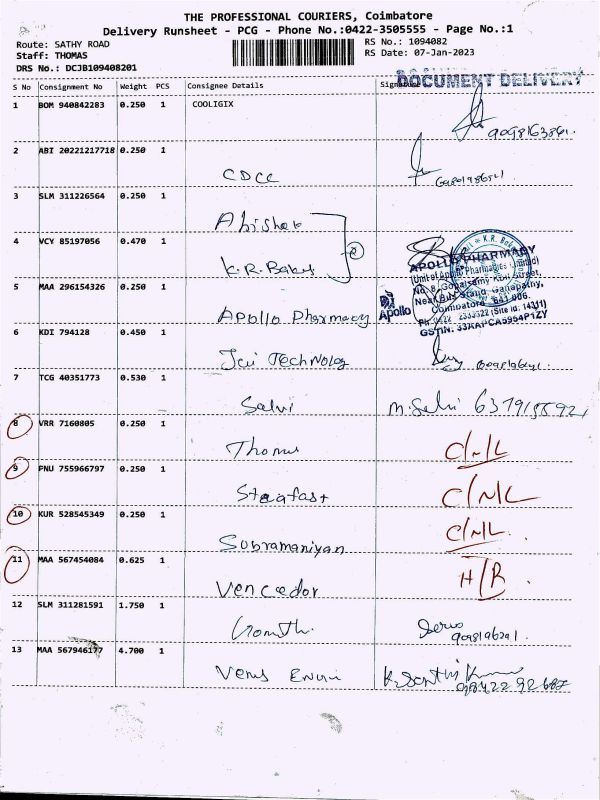 THE PROFESSIONAL COURIERS, Coimbatore
Delivery Runsheet - PCG - Phone No.:0422-3505555 - Page No.:1
Route: SATHY ROAD RS No.: 1094082
Staff: THOMAS RS Date: 07-Jan-2023
DRS No.: DCJB109408201
DOCUMENT DELIVERY
S No Consignment No Weight PCS Consignee Details Signature
1 BOM 940842283 0.250 1 COOLGIX
2 ABI 20221217718 0.250 1
CDCC
3 SLM 311226564 0.250 1
Abishek
4 VCY 85197056 0.470 1
K.R. Babu
5 MAA 296154326 0.250 1
Apollo Pharmacy
APOLLO PHARMACY
(Unit of Apollo Pharmacies Limited)
No. 8, Gopalsamy Koil Street,
Near Bus Stand, Ganapathy,
Coimbatore - 641 006.
(Site Id: 14311)
GSTIN: 33AAPCA5954P1ZY
Apollo
6 KDI 794128 0.450 1
Jai Technolog
7 TCG 40351773 0.530 1
Salvi M. Selvi
8 VRR 7160805 0.250 1
Thomas C/N/L
9 PNU 755966797 0.250 1
Steafast C/N/L
10 KUR 528545349 0.250 1
Subramaniyan C/N/L.
11 MAA 567454084 0.625 1
Vencedor H/R
12 SLM 311281591 1.750 1
13 MAA 567946177 4.700 1
Venus